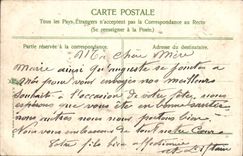 CARTE POSTALE
Tous les Pays Étrangers n'acceptent pas la Correspondance au Recto
(Se renseigner à la Poste)
Partie réservée à la correspondance.
Adresse du destinataire.
Ma Chère Mère
Marie ainsi que Auguste se joint a
moi pour vous envoyer nos meilleurs
souhaits a l'occasion de votre fête, nous
espérons que vous ete en bonne santé
nous autres nous nous portons bien
Nous vous embrassons de tout notre Cœur
Votre fils bien affectionné